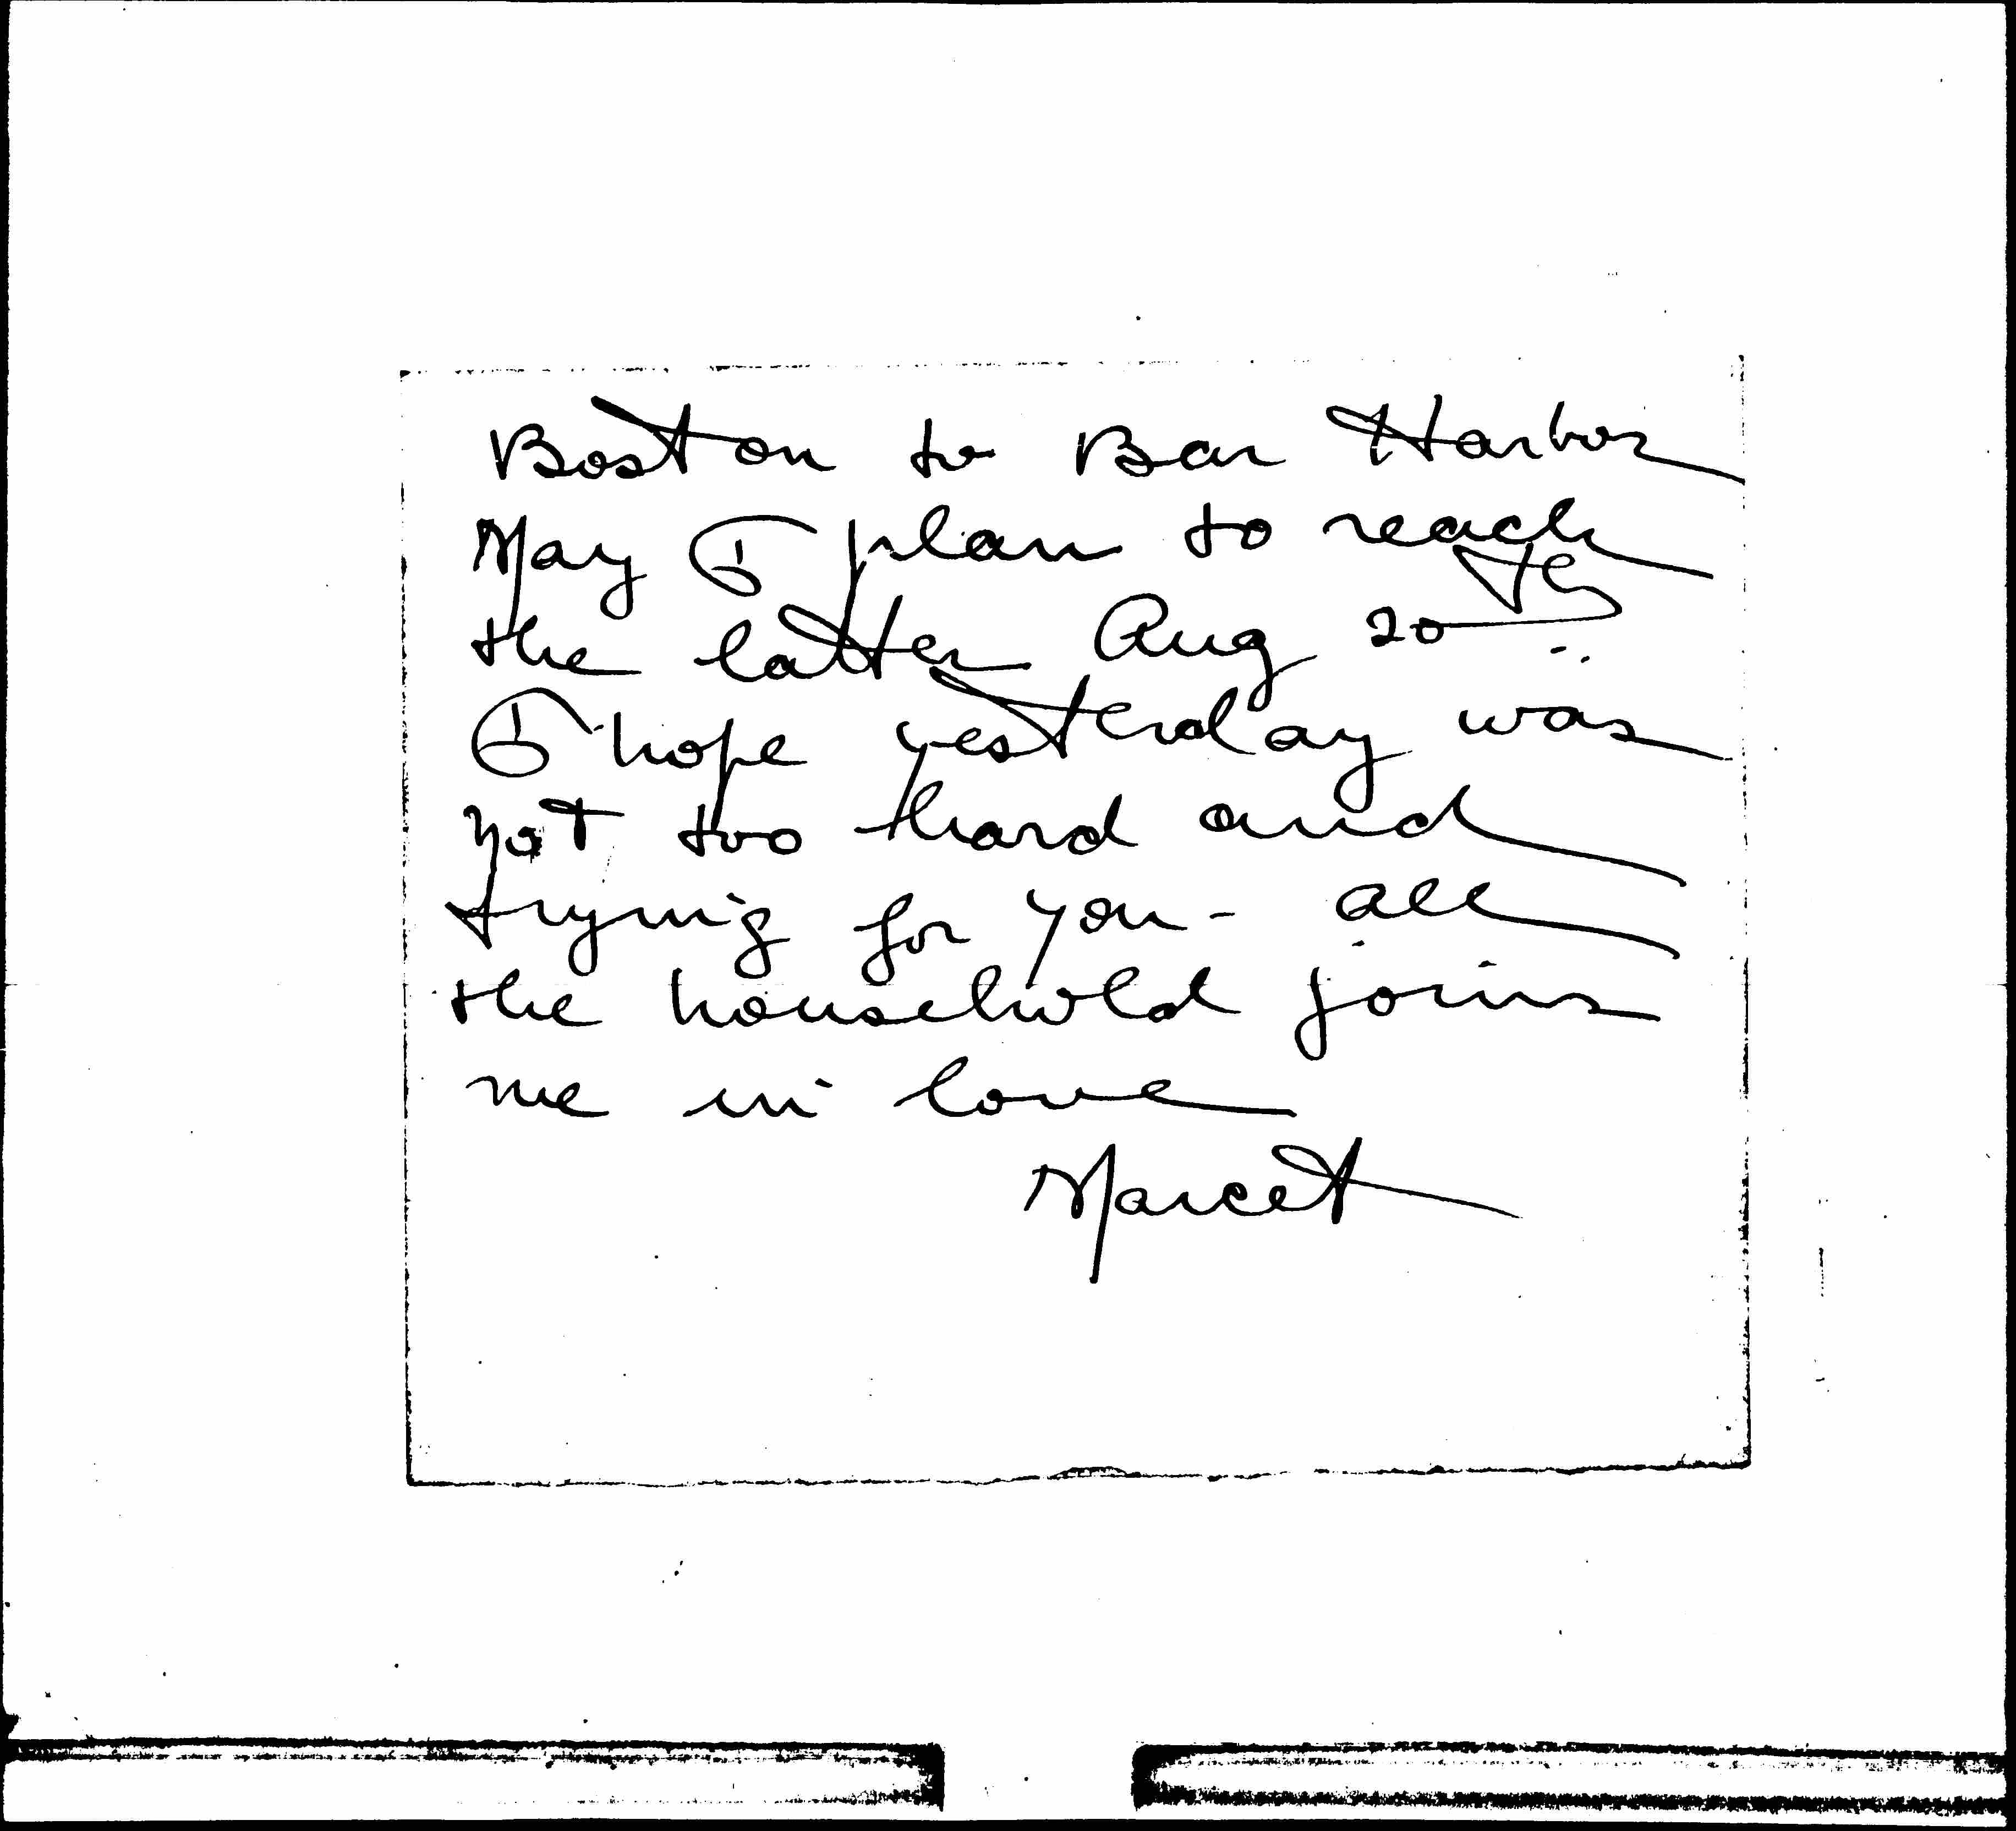 Boston to Bar Harbor
May I plan to reach
the latter Aug 20th
I hope yesterday was
not too hard and
trying for you - all
the household joins
me in love
Marcet